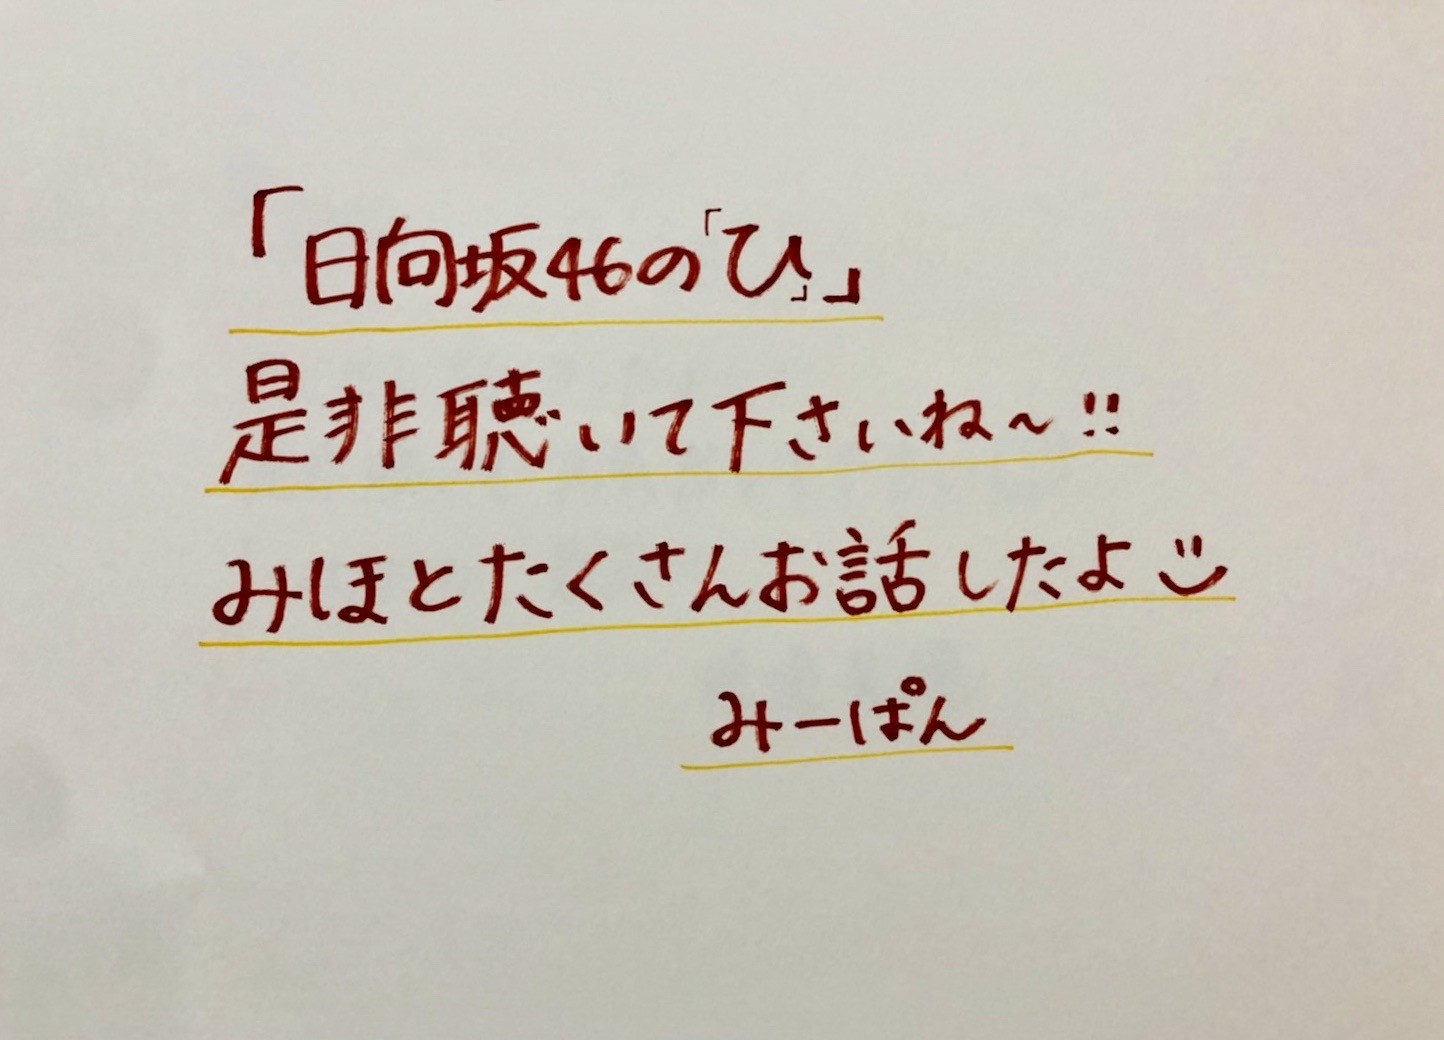 「日向坂46の「ひ」」
是非聴いて下さいね〜!!
みほとたくさんお話したよ
みーぱん